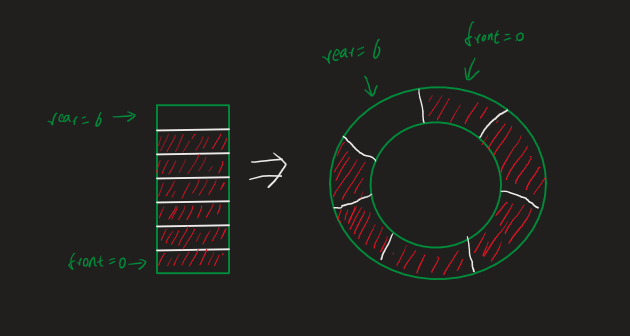 rear=6
front=0
rear=6
front=0